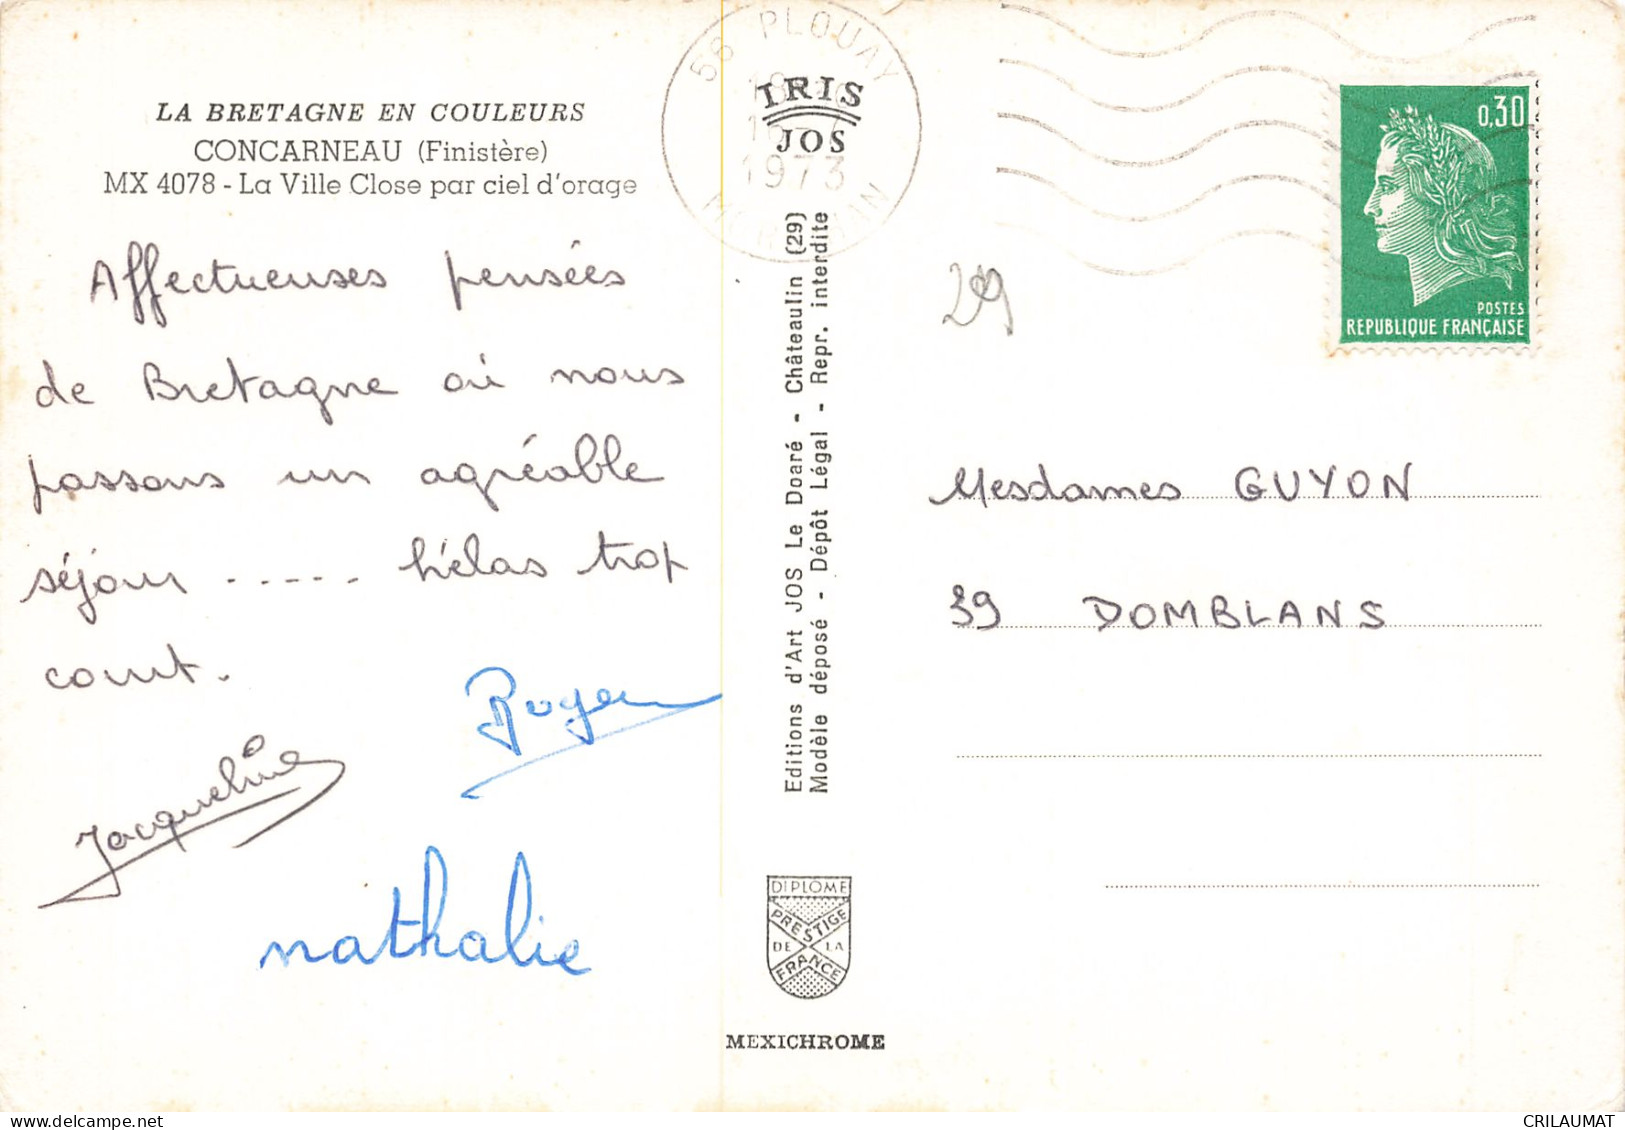 LA BRETAGNE EN COULEURS
CONCARNEAU (Finistère)
MX 4078 - La Ville Close par ciel d'orage
Affectueuses pensées
de Bretagne où nous
passons un agréable
séjour ..... hélas trop
court.
Roger
Jacqueline
nathalie
56 PLOUAY
1973
MORBIHAN
IRIS
JOS
Editions d'Art JOS Le Doaré - Châteaulin (29)
Modèle déposé - Dépôt Légal - Repr. interdite
DIPLÔME
PRESTIGE
DE LA
FRANCE
MEXICHROME
0,30
POSTES
REPUBLIQUE FRANÇAISE
29
Mesdames GUYON
39 DOMBLANS
CRILAUMAT